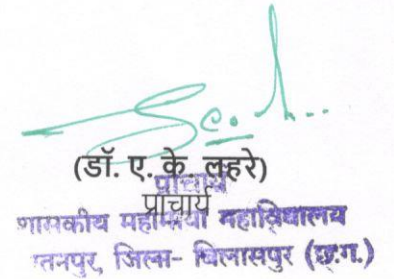 (डॉ. ए. के. लहरे)
प्राचार्य
प्राचार्य
शासकीय महामाया महाविद्यालय
रतनपुर, जिला- बिलासपुर (छ.ग.)